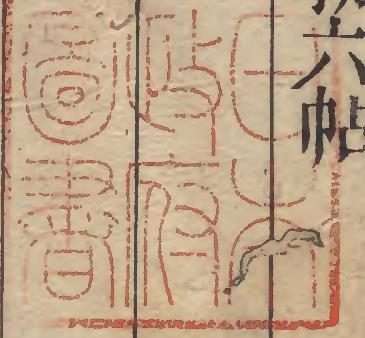 六帖
日本
政府
圖書